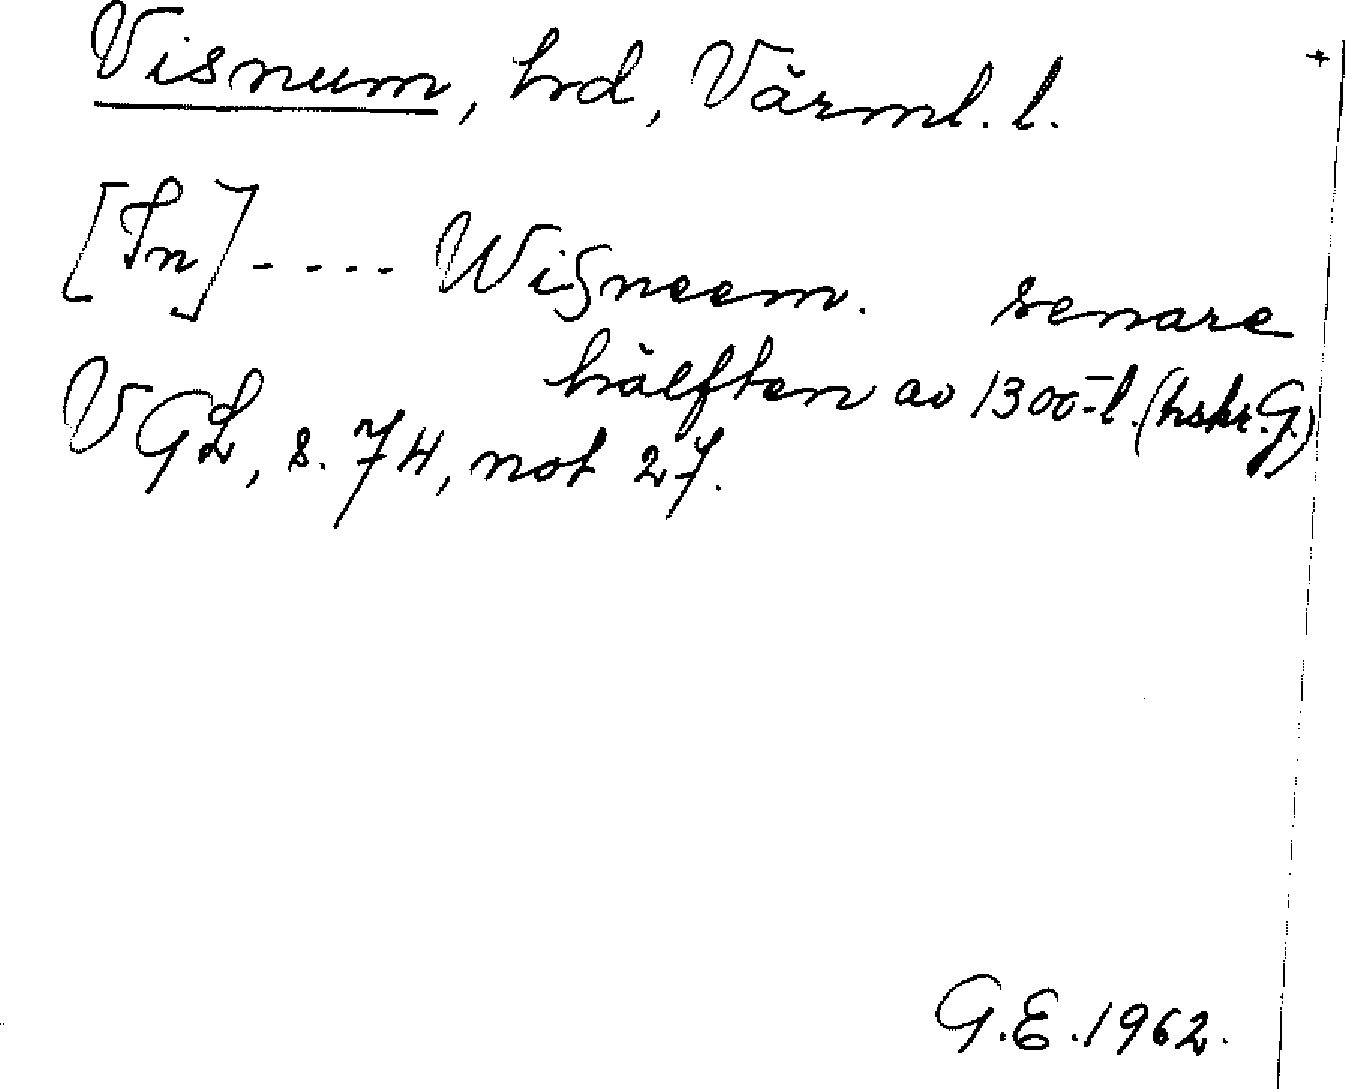 Visnum, hd, Värml. l. +
[In] - - - - Wisneem. senare
hälften av 1300-l. (hskr. G.)
VGL, s. 74, not 27.
G.E. 1962.